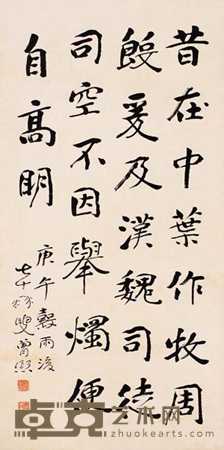 昔在中葉作牧周
殷爰及漢魏司徒
司空不因舉燭便
自高明
庚午穀雨後
七十叟曾熙
卓克艺术网
zhuokearts.com